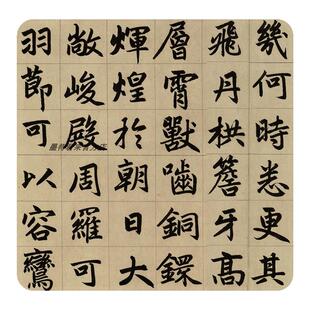 幾何時悉更其
飛丹栱簷牙高
層霄獸嚙銅鐶
煇煌於朝日大
敞峻殿周羅可
羽莭可以容鸞